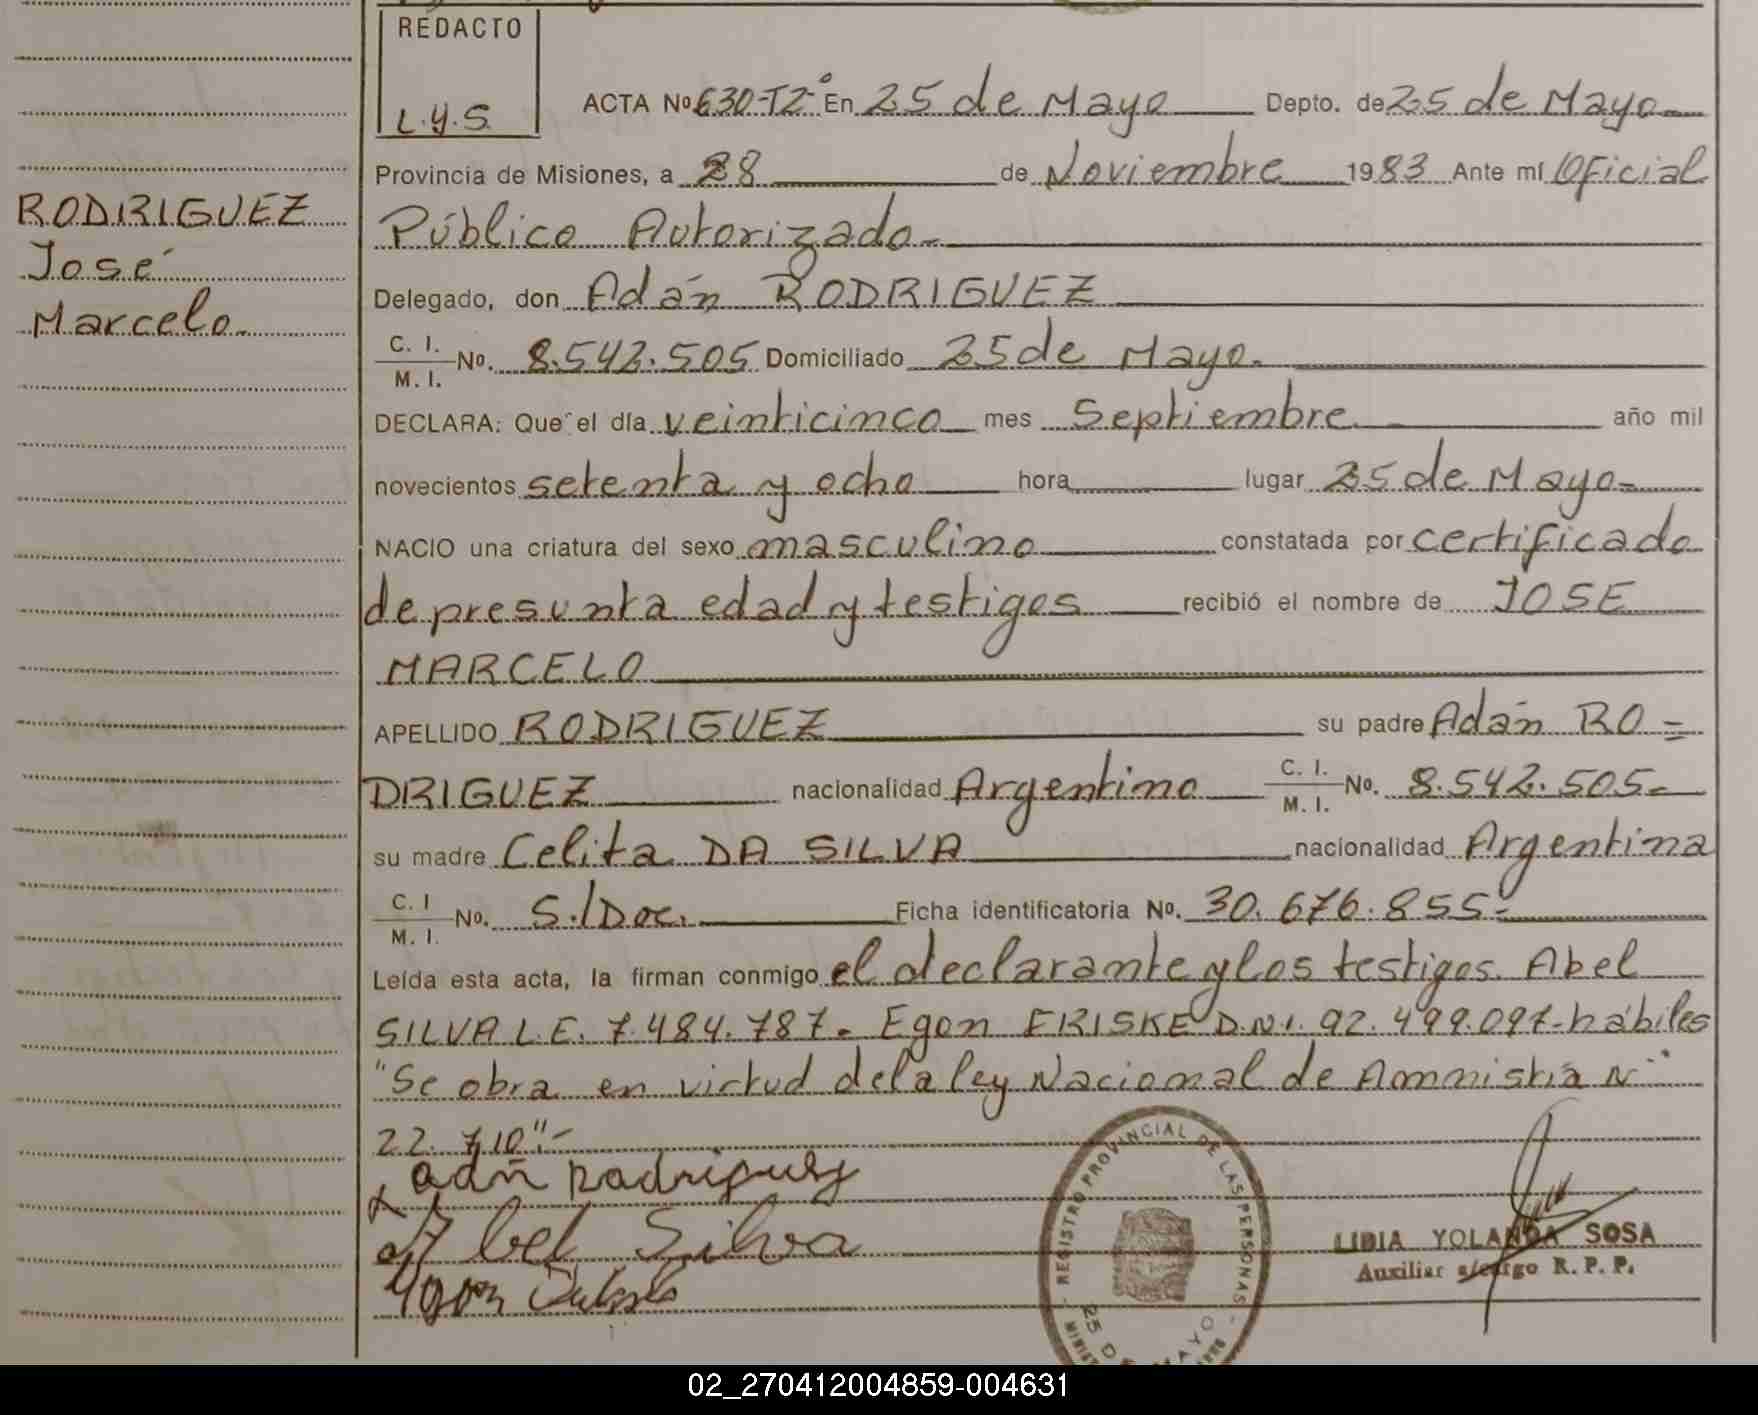 REDACTO
L.Y.S.
ACTA Nº 630-Tº2- En 25 de Mayo Depto. de 25 de Mayo
Provincia de Misiones, a 28 de Noviembre 1983 Ante mí Oficial
Público Autorizado.-
Delegado, don Adán RODRIGUEZ
C. I.
M. I. Nº. 8.542.505 Domiciliado 25 de Mayo.
DECLARA: Que el día veinticinco mes Septiembre año mil
novecientos setenta y ocho hora lugar 25 de Mayo-
NACIO una criatura del sexo masculino constatada por certificado
de presunta edad y testigos recibió el nombre de JOSE
MARCELO
APELLIDO RODRIGUEZ su padre Adán RO=
DRIGUEZ nacionalidad Argentino C. I.
M. I. Nº. 8.542.505-
su madre Celita DA SILVA nacionalidad Argentina
C. I
M. I. Nº. S./Doc. Ficha identificatoria Nº. 30.676.855-
Leída esta acta, la firman conmigo el declarante y los testigos. Abel
SILVA L.E. 7.484.787- Egon ERISKE D.N.I. 92.499.097-hábiles
"Se obra en virtud de la ley Nacional de Ammistia Nº
22.710"-
adñ Rodriguez
Abel Silva
RODRIGUEZ
José
Marcelo.
REGISTRO PROVINCIAL DE LAS PERSONAS
25 DE MAYO
LIDIA YOLANDA SOSA
Auxiliar s/cargo R. P. P.
02_270412004859-004631